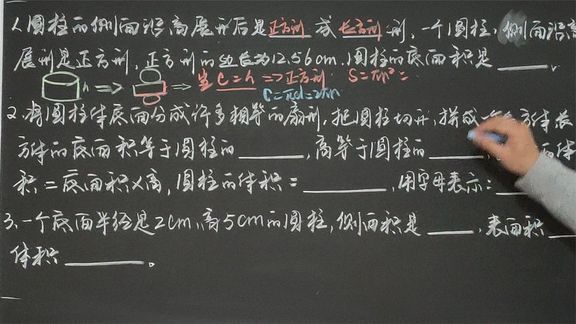 1.圆柱的侧面沿高展开后是正方形或长方形形,一个圆柱,侧面沿高
展形是正方形,正方形的边长为12.56cm,圆柱的底面积是____,
h => => 当C=h => 正方形 S=πr²=
C=πd=2πr
2.将圆柱体底面分成许多相等的扇形,把圆柱切开,拼成一个 方体长
方体的底面积等于圆柱的____,高等于圆柱的____, 体
积=底面积×高,圆柱的体积=____,用字母表示:
3.一个底面半径是2cm,高5cm的圆柱,侧面积是____,表面积____
体积____。